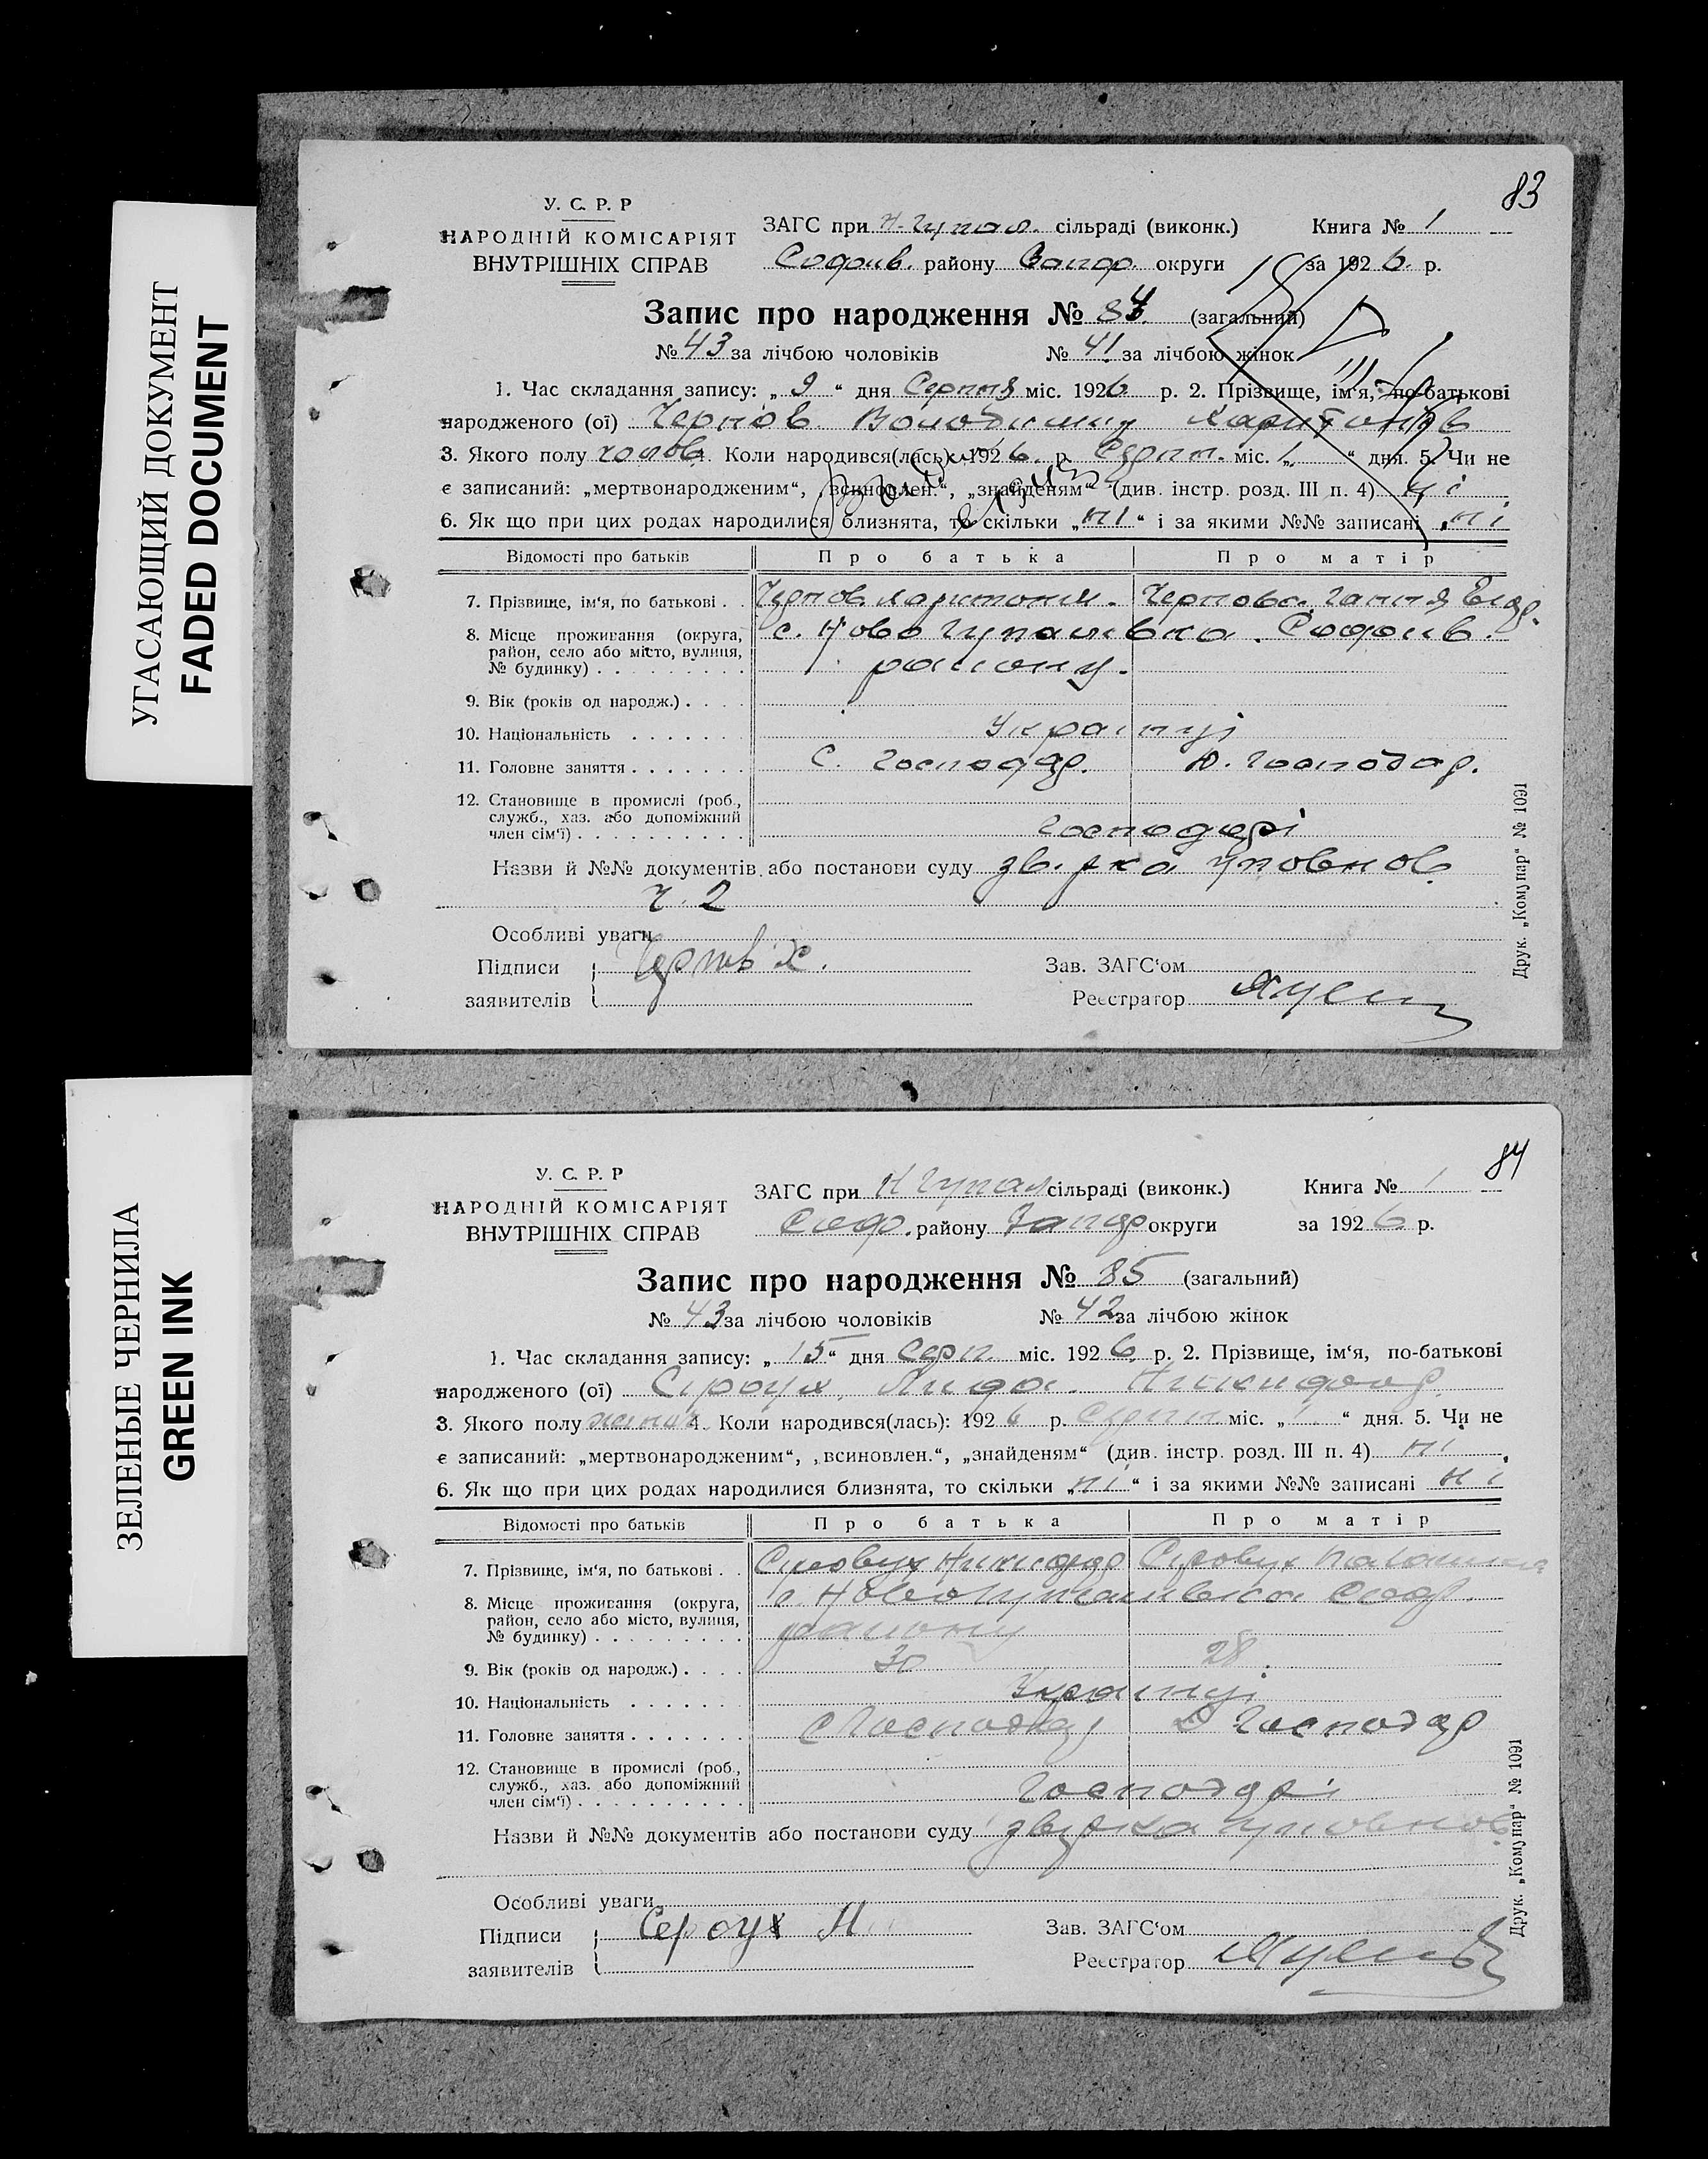 УГАСАЮЩИЙ ДОКУМЕНТ
FADED DOCUMENT
83
У. С. Р. Р
НАРОДНІЙ КОМІСАРІЯТ
ВНУТРІШНІХ СПРАВ
ЗАГС при Н-Гупал. сільраді (виконк.) Книга № 1
Софиів. району Запор. округи за 1926. р.
Запис про народження № 84 (загальний)
№ 43 за лічбою чоловіків № 41 за лічбою жінок
1. Час складання запису: „ 9 “ дня Серпня міс. 1926 р. 2. Прізвище, ім‘я, по-батькові
народженого (ої) Чернов Володимир Харитонів
3. Якого полу чолов. 4. Коли народився(лась): 1926. р. Серпн. міс. „ 1 “ дня. 5. Чи не
є записаний: „мертвонародженим“, „всиновлен.“, „знайденям“ (див. інстр. розд. III п. 4) ні
6. Як що при цих родах народилися близнята, то скільки „ ні “ і за якими №№ записані ні
Відомості про батьків Про батька Про матір
7. Прізвище, ім‘я, по батькові . . Чернов Харитоним. Чернова Гання
8. Місце проживання (округа, с. Ново Гупалівка. Софиів.
район, село або місто, вулиця, району.
№ будинку) . . . . . . . . .
9. Вік (років од народж.) . . . .
10. Національність . . . . . . . Українці
11. Головне заняття . . . . . . . С. Господар. Д. Господар.
12. Становище в промислі (роб.,
служб., хаз. або допоміжний
член сім‘ї) . . . . . . . . . . Господарі
Назви й №№ документів або постанови суду
ч. 2
Особливі уваги
Підписи Чернов Х. Зав. ЗАГС‘ом
заявителів Реєстратор
Друк. „Комунар“ № 1091
ЗЕЛЕНЫЕ ЧЕРНИЛА
GREEN INK
84
У. С. Р. Р
НАРОДНІЙ КОМІСАРІЯТ
ВНУТРІШНІХ СПРАВ
ЗАГС при Н Гупал сільраді (виконк.) Книга № 1
Соф. району Запор округи за 1926. р.
Запис про народження № 85 (загальний)
№ 43 за лічбою чоловіків № 42 за лічбою жінок
1. Час складання запису: „ 15 “ дня Серп. міс. 1926. р. 2. Прізвище, ім‘я, по-батькові
народженого (ої) Сіроух Лида
3. Якого полу жіноч 4. Коли народився(лась): 1926 р. Серпн міс. „ “ дня. 5. Чи не
є записаний: „мертвонародженим“, „всиновлен.“, „знайденям“ (див. інстр. розд. III п. 4) ні
6. Як що при цих родах народилися близнята, то скільки „ ні “ і за якими №№ записані ні
Відомості про батьків Про батька Про матір
7. Прізвище, ім‘я, по батькові . .
8. Місце проживання (округа, с. Новогупалівка Соф.
район, село або місто, вулиця, району
№ будинку) . . . . . . . . .
9. Вік (років од народж.) . . . . 30 28.
10. Національність . . . . . . . Українці
11. Головне заняття . . . . . . . С Господар Д Господар
12. Становище в промислі (роб.,
служб., хаз. або допоміжний
член сім‘ї) . . . . . . . . . . Господарі
Назви й №№ документів або постанови суду
Особливі уваги
Підписи Сероух Н Зав. ЗАГС‘ом
заявителів Реєстратор
Друк. „Комунар“ № 1091